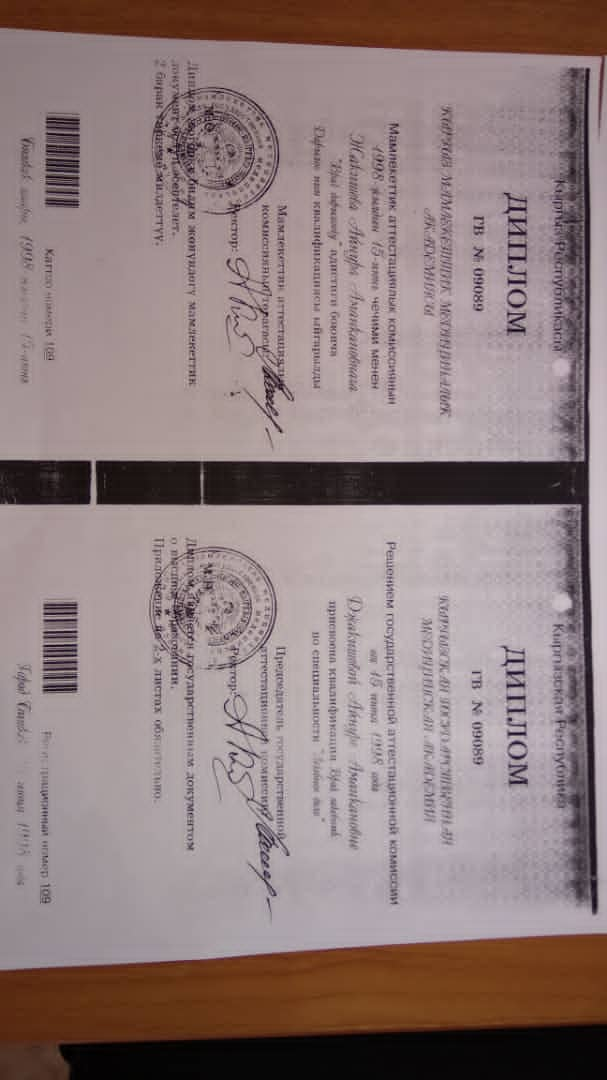 Кыргыз Республикасы
ДИПЛОМ
ГВ № 09089
КЫРГЫЗ МАМЛЕКЕТТИК МЕДИЦИНАЛЫК
АКАДЕМИЯСЫ
Мамлекеттик аттестациялык комиссиянын
1998 жылдын 15-июнь чечими менен
Жакшиева Айнура Аманкановнага
адистиги боюнча
Дарыгер квалификациясы ыйгарылды
Мамлекеттик аттестациялык
комиссиянын төрагасы
Ректор:
Диплом жогорку билим жөнүндөгү мамлекеттик
документ болуп эсептелет.
2 барак тиркеме милдеттүү.
Каттоо номери 109
Бишкек шаары 1998 15-июнь
Кыргызская Республика
ДИПЛОМ
ГВ № 09089
КЫРГЫЗСКАЯ ГОСУДАРСТВЕННАЯ
МЕДИЦИНСКАЯ АКАДЕМИЯ
Решением государственной аттестационной комиссии
от 15 июня 1998 года
Джакшиевой Айнуре Аманкановне
присвоена квалификация Врач
по специальности "Лечебное дело"
Председатель государственной
аттестационной комиссии
Ректор:
Диплом является государственным документом
о высшем образовании.
Приложение на 2-х листах обязательно.
Регистрационный номер 109
Город Бишкек июня 1998 года